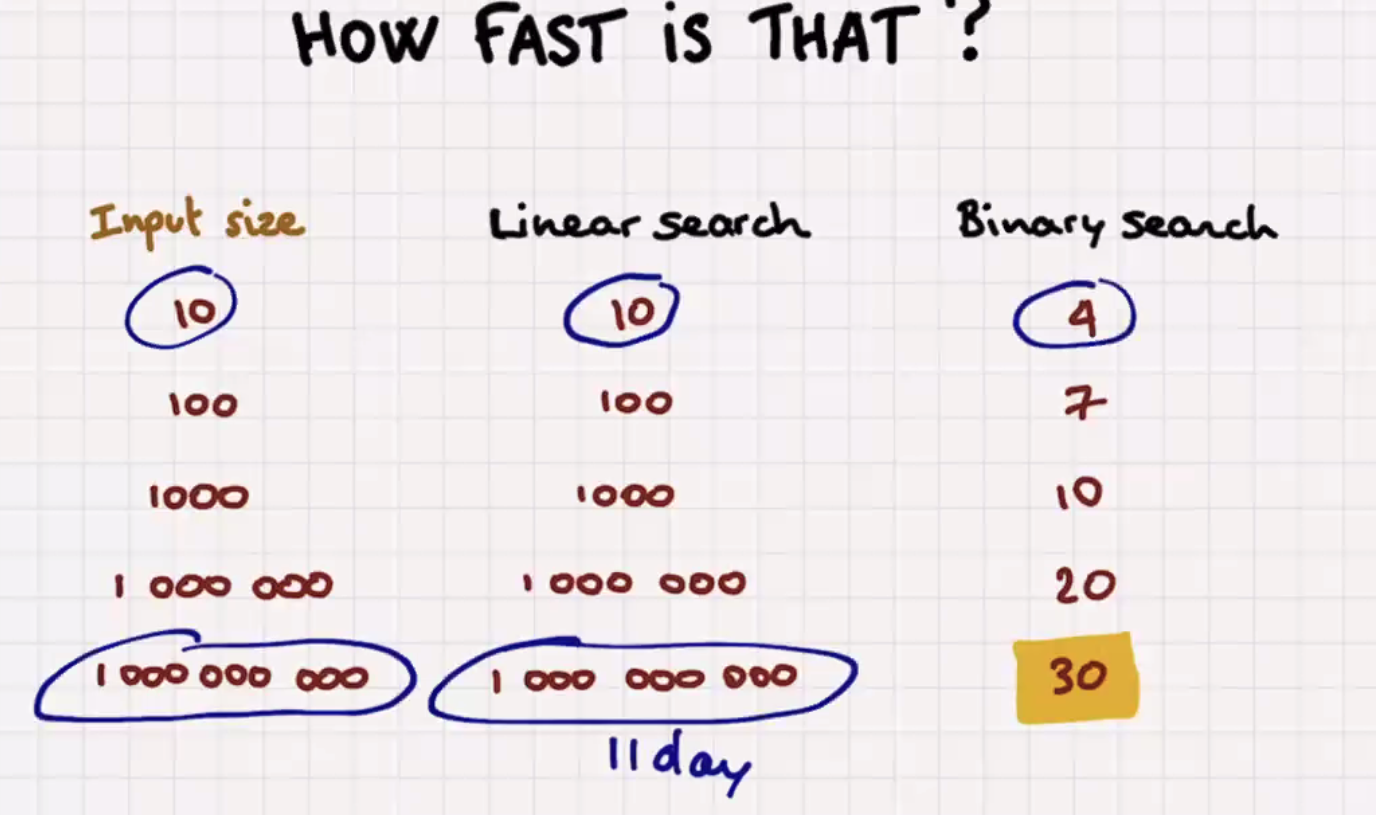 HOW FAST iS THAT ?
Input size Linear search Binary search
10 10 4
100 100 7
1000 1000 10
1 000 000 1 000 000 20
1 000 000 000 1 000 000 000 30
11 day